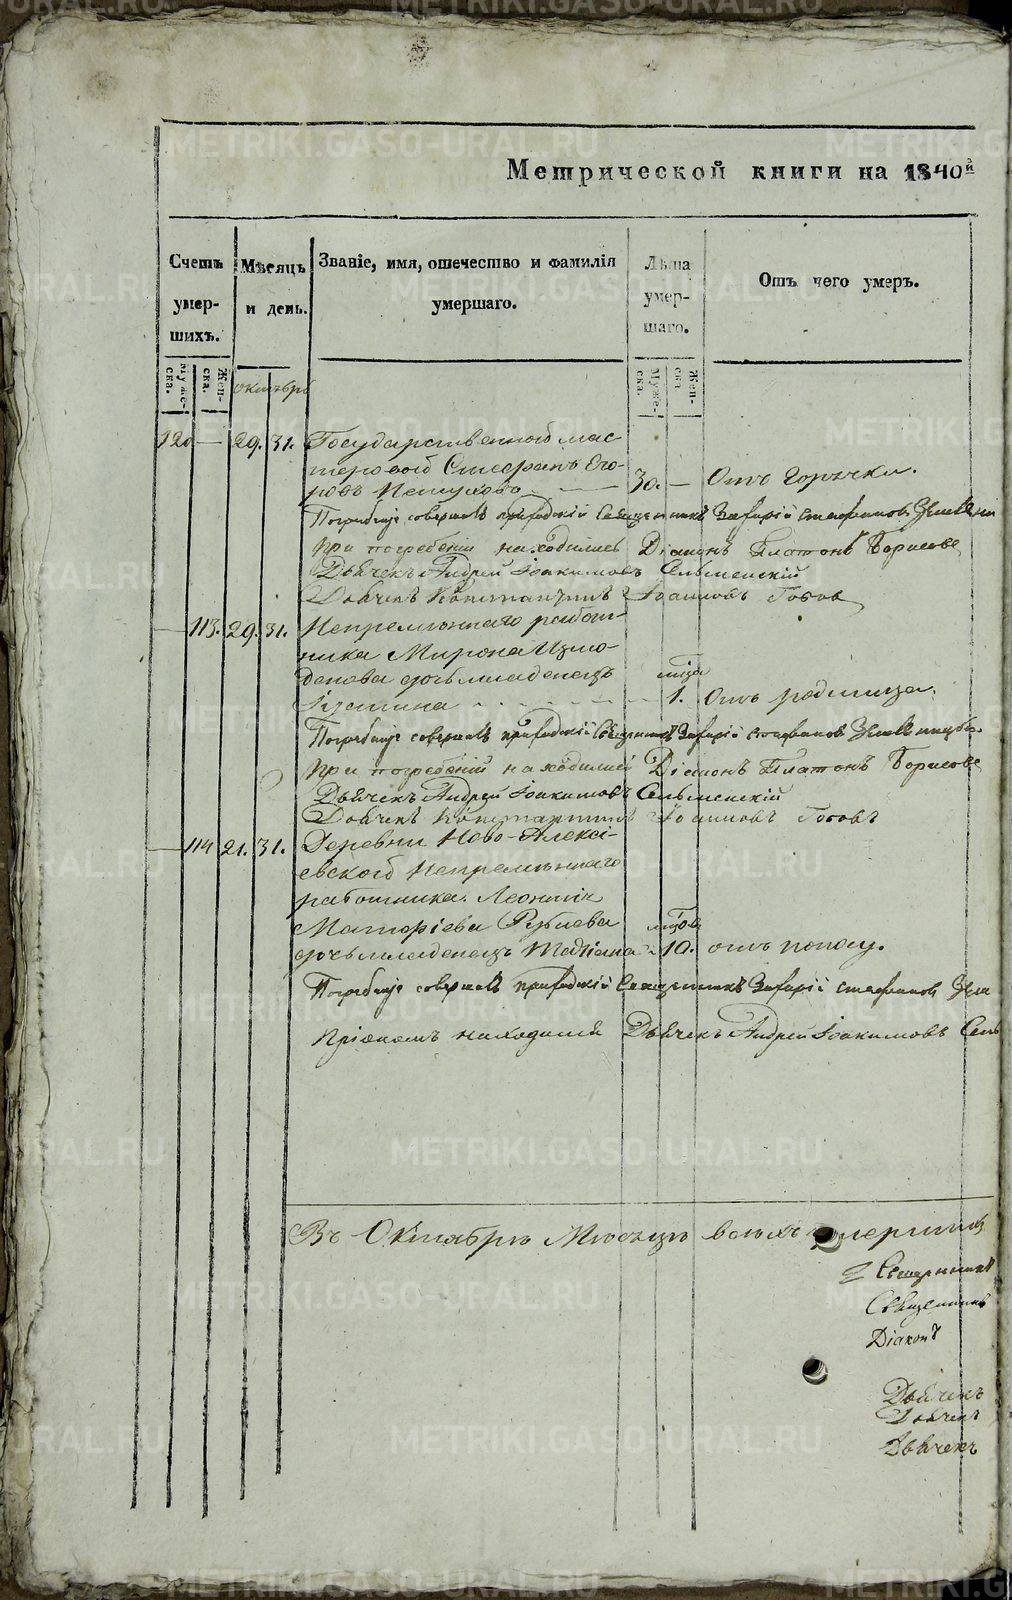 Метрической книги на 1840й
Счетъ умерших. Мѣсяцъ и день. Званіе, имя, отечество и фамилія умершаго. Лѣта умершаго. Отъ чего умеръ.
Мужеска. Женска. октябрь Мужеска. Женска
120 — 29. 31. Государственной мас-
теровой Стефанъ Его-
ровъ Петуховъ — 30. — Отъ горячки.
Погребеніе совершалъ приходскій Священникъ Захарій Стефановъ
При погребеніи находились Діаконъ Платонъ Борисовъ
Дьячекъ Андрей Іоакимовъ Сельменскій
Дьячекъ Константинъ Іоанновъ Поповъ
— 113. 29. 31. Непремѣннаго работ-
ника Мирона Измо-
денова дочь младенецъ
— 1. Отъ родимца.
Погребеніе совершалъ приходскій Священникъ Захарій Стефановъ
При погребеніи находились Діаконъ Платонъ Борисовъ
Дьячекъ Андрей Іоакимовъ Сельменскій
Дьячекъ Константинъ Іоанновъ Поповъ
— 114 21. 31. Деревни Ново-Алекс-
евской Непремѣннаго
работника Леонтія
дочь младенецъ Татіана — 10. отъ поносу.
Погребеніе совершалъ приходскій Священникъ Захарій Стефановъ
При ономъ находился Дьячекъ Андрей Іоакимовъ Сель
Въ Октябрѣ Мѣсяцѣ всѣхъ умершихъ
Священникъ
Священникъ
Діаконъ
Дьячекъ
Дьячекъ
Дьячекъ
METRIKI.GASO-URAL.RU